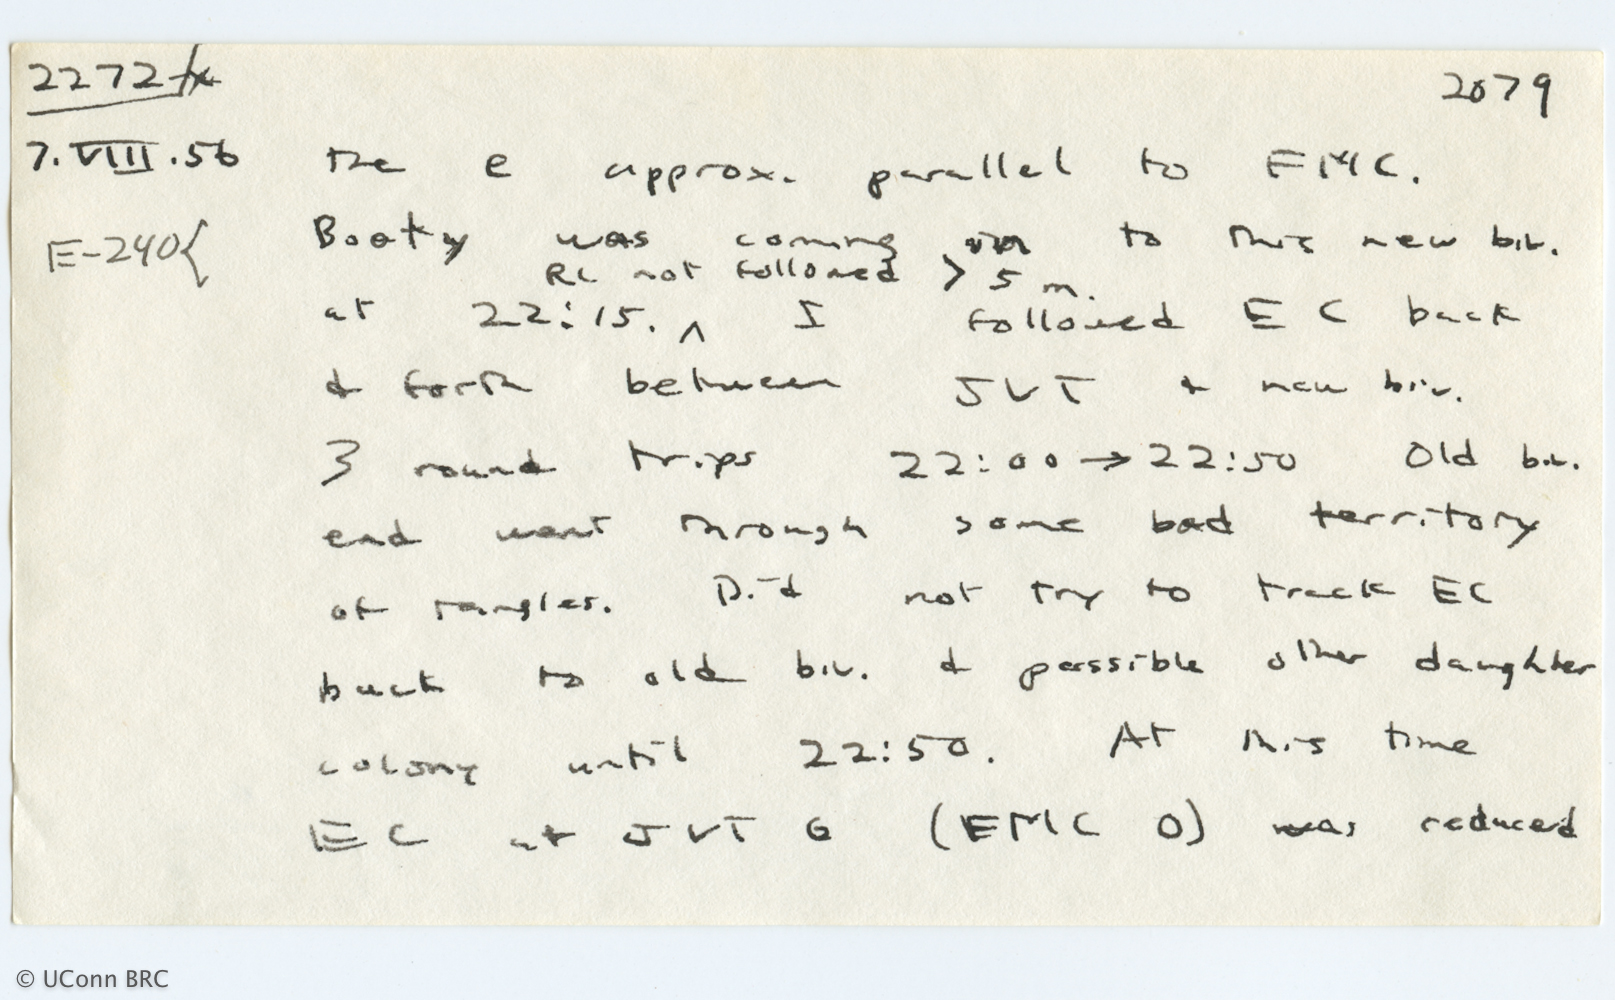 2272
2079
7.VIII.56 the e approx. parallel to EMC.
E-240{ Booty was coming in to this new biv.
RC not followed > 5 m.
at 22:15. ^ I followed EC back
& forth between JVT & new biv.
3 round trips 22:00 → 22:50 Old biv.
end went through some bad territory
of tangles. Did not try to track EC
back to old biv. & possible other daughter
colony until 22:50. At this time
EC at JVT 6 (EMC 0) was reduced
© UConn BRC